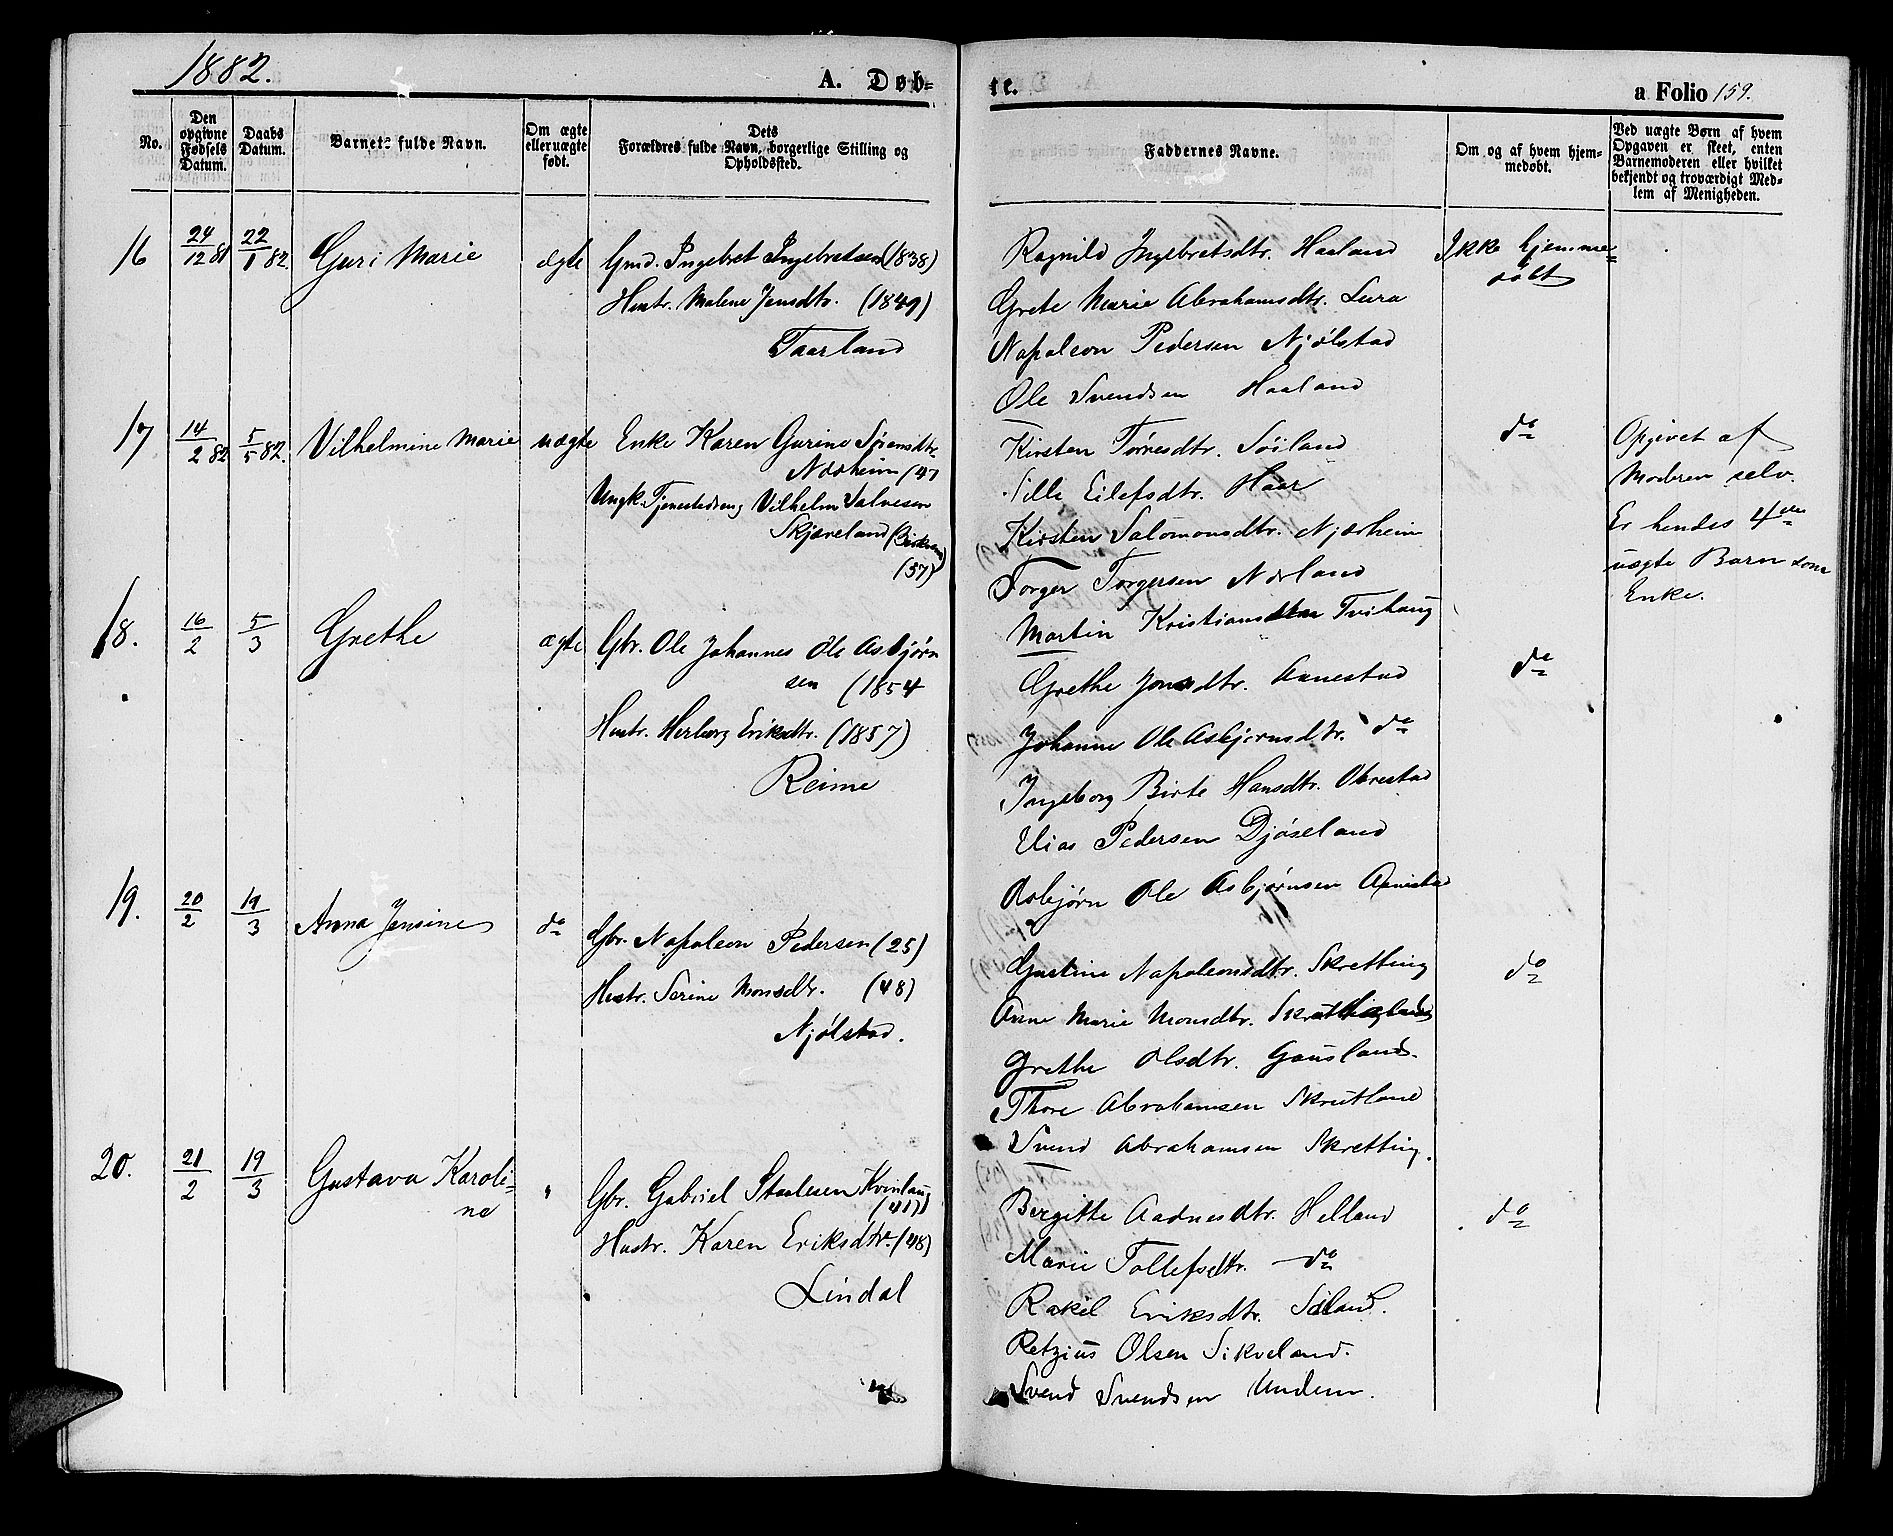 1882.
A. Døb-
te.
a Folio 159.
No.
Den opgivne Fødsels Datum.
Daabs Datum.
Barnets fulde Navn.
Om ægte eller uægte født.
Dets Forældres fulde Navn, borgerlige Stilling og Opholdssted.
Faddernes Navne.
Om og af hvem hjem-
medøbt.
Ved uægte Børn af hvem
Opgaven er skeet, enten
Barnemoderen eller hvilket
bekjendt og troværdigt Med-
lem af Menigheden.
16
24/12 81
22/1 82
Guri Marie
ægte
Gmd. Ingebret Ingebretsen (1838)
Hustr. Malene Jensdtr. (1849)
Taarland
Ragnild Ingebretsdtr. Haaland
Grete Marie Abrahamsdtr. Lura
Napoleon Pedersen Njølstad
Ole Svendsen Haaland
Ikke hjemme-
døbt
17
14/2 82
5/5 82.
Vilhelmine Marie
uægte
Enke Karen Gurine Sørensdtr.
Nærheim (47
Ungk. Tjenestedreng Vilhelm Salvesen
Skjæveland
(57)
Kirsten Tørresdtr. Søiland
Sille Eilefsdtr. Haar
Kirsten Salomonsdtr. Njærheim
Torger Torgersen Nærland
Martin Kristiansen Tvihaug
do
Opgivet af
Moderen selv.
Er hendes 4de
uægte Barn som
Enke.
18.
16/2
5/3
Grethe
ægte
Gbr. Ole Johannes Ole Asbjørn
sen (1854
Hustr. Herborg Eriksdtr. (1857)
Reime
Grethe Jonsdtr. Aanestad
Johanne Ole Asbjørnsdtr. do
Ingeborg Birte Hansdtr. Obrestad
Elias Pedersen Djøseland
Asbjørn Ole Asbjørnsen Aanestad
do
19.
20/2
19/3
Anna Jensine
do
Gbr. Napoleon Pedersen (25)
Hustr. Serine Monsdtr. (48)
Njølstad.
Gustine Napoleonsdtr. Skretting
Anne Marie Monsdtr.
Grethe Olsdtr. Gausland.
Thore Abrahamsen Skrutland
Svend Abrahamsen Skretting.
do
20.
21/2
19/3
Gustava Karoli-
ne
"
Gbr. Gabriel Staalesen Kvinlaug
(41)
Hustr. Karen Eriksdtr. (48)
Lindal
Bergitte Aadnesdtr. Helland
Marie Tollefsdtr. do
Rakel Eriksdtr.
Retzius Olsen Sikveland.
Svend Svendsen Undem.
do